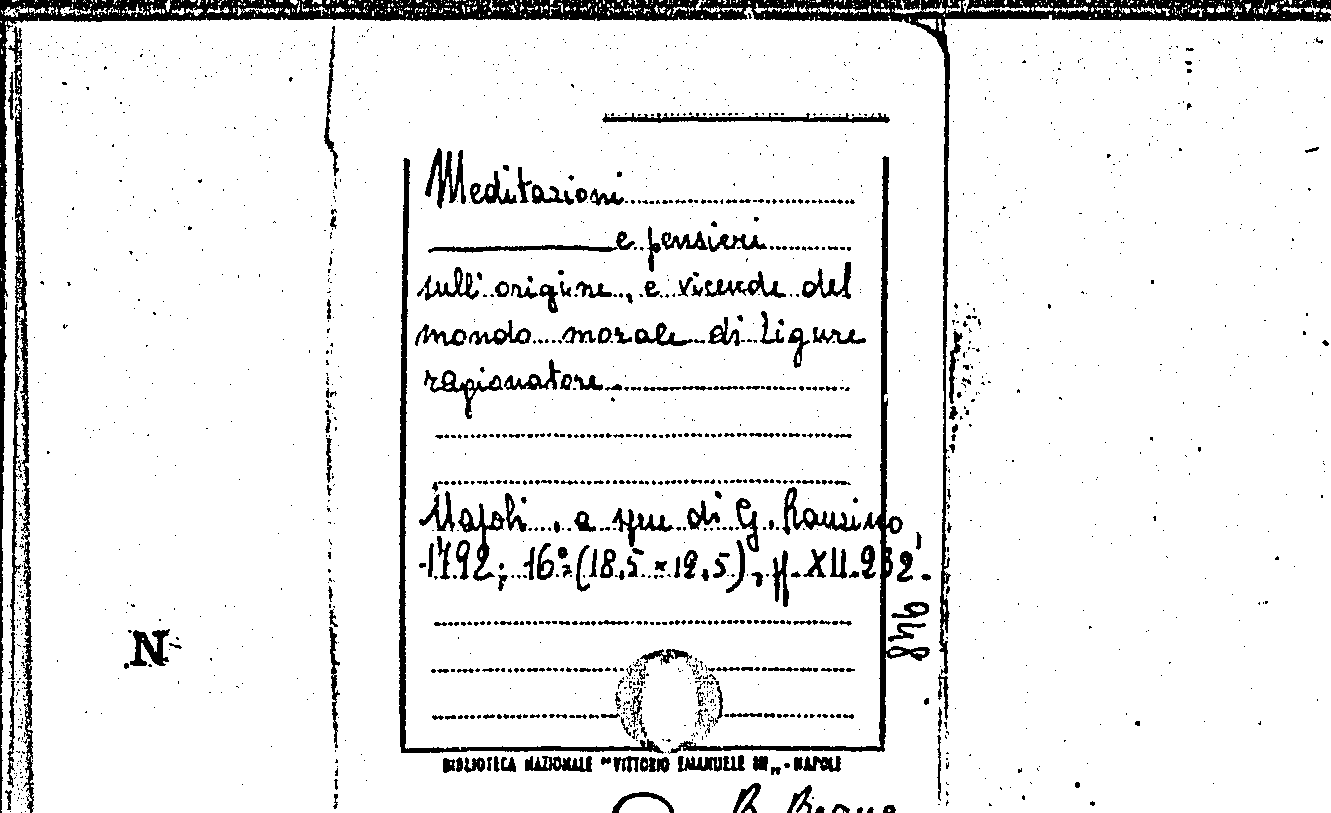 Meditazioni
e pensieri
sull'origine, e vicende del
mondo morale di Ligure
ragionatore.
Napoli, a spese di G.
1792; 16° (18,5 × 12,5), pp. XII-232.
948
N
BIBLIOTECA NAZIONALE "VITTORIO EMANUELE III" - NAPOLI
B.